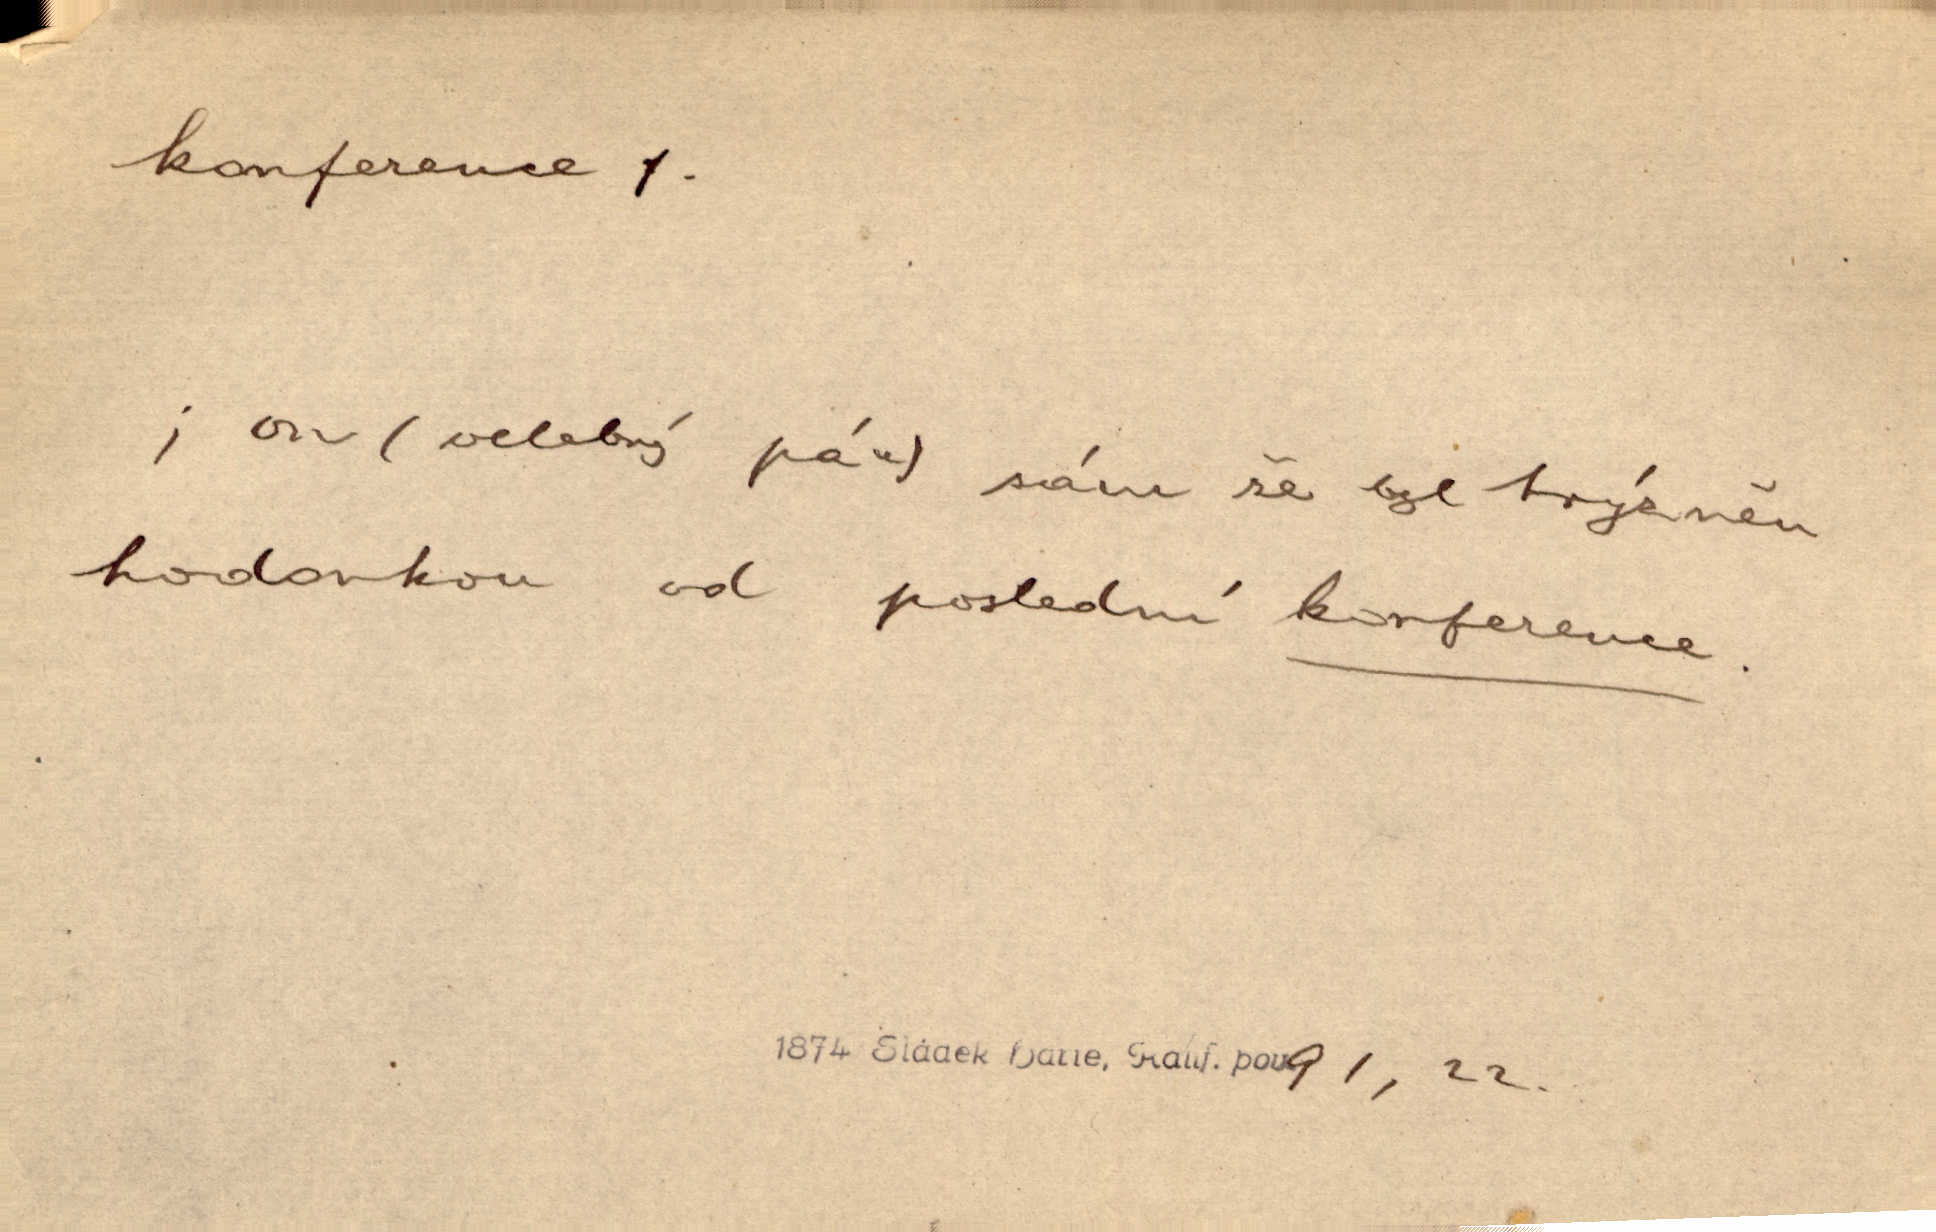 konference f.
i on (velebný pán) sám že byl trýzněn
hodonkou od poslední konference.
1874 Sládek Harte, Kalif. pov. 91, 22.